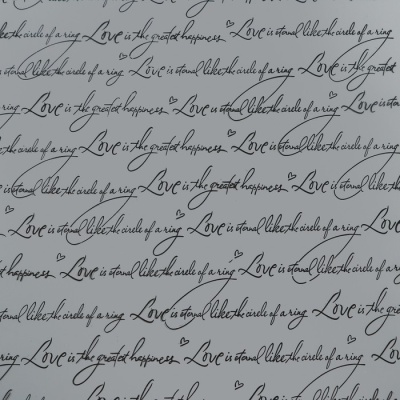 like the circle of a ring Love is the greatest happiness Love is eternal like the circle of a ring
is eternal like the circle of a ring Love is eternal like the circle of a ring Love is the greatest
ring Love is the greatest happiness Love is eternal like the circle of a ring Love is eternal
like the circle of a ring Love is the greatest happiness Love is eternal like the circle of a ring
is eternal like the circle of a ring Love is the greatest happiness Love is eternal like the
Love is eternal like the circle of a ring Love is eternal like the circle of a ring
happiness Love is eternal like the circle of a ring Love is eternal like the circle of a ring
eternal like the circle of a ring Love is eternal like the circle of a ring Love is the
ring Love is the greatest happiness Love is eternal like the circle of a ring Love
like the circle of a ring Love is the greatest happiness Love is eternal like the circle of a ring